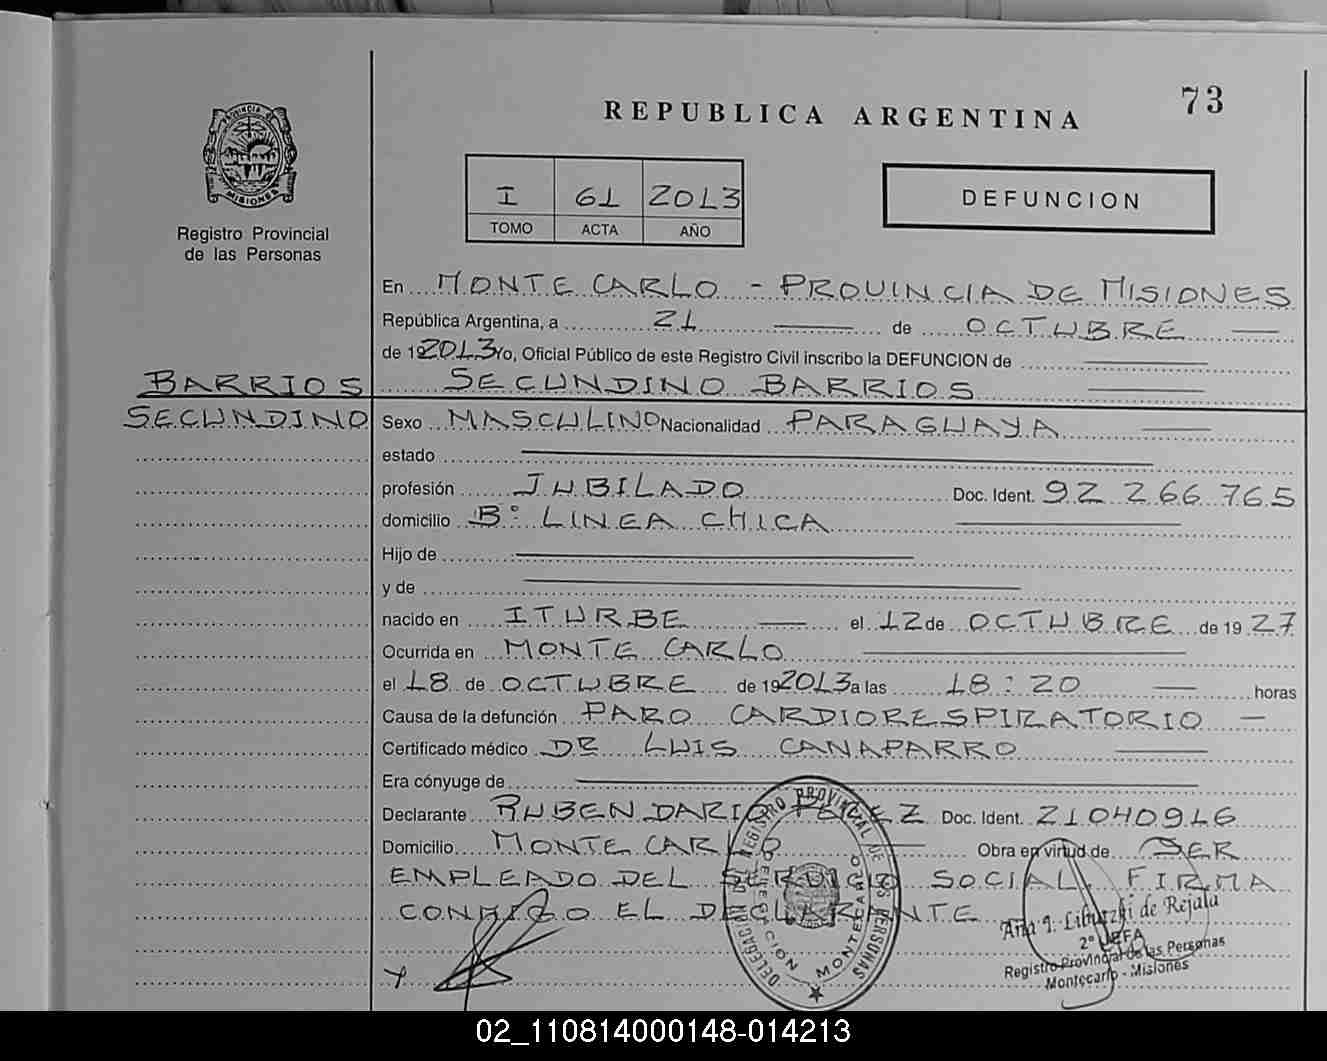 73
REPUBLICA ARGENTINA
PROVINCIA DE MISIONES
Registro Provincial
de las Personas
I 61 2013
TOMO ACTA AÑO
DEFUNCION
En MONTE CARLO - PROVINCIA DE MISIONES
República Argentina, a 21 de OCTUBRE
de 192013 Yo, Oficial Público de este Registro Civil inscribo la DEFUNCION de
BARRIOS SECUNDINO BARRIOS
SECUNDINO Sexo MASCULINO Nacionalidad PARAGUAYA
estado
profesión JUBILADO Doc. Ident. 92 266 765
domicilio B° LINEA CHICA
Hijo de
y de
nacido en ITURBE el 12 de OCTUBRE de 19 27
Ocurrida en MONTE CARLO
el 18 de OCTUBRE de 192013 a las 18:20 horas
Causa de la defunción PARO CARDIORESPIRATORIO
Certificado médico DR LUIS CANAPARRO
Era cónyuge de
Declarante RUBEN DARIO PEREZ Doc. Ident. 21040916
Domicilio MONTE CARLO Obra en virtud de SER
EMPLEADO DEL SERVICIO SOCIAL, FIRMA
CONMIGO EL DECLARANTE
DELEGACION MONTECARLO
REGISTRO PROVINCIAL DE LAS PERSONAS
Ana I. de Rejala
2° JEFA
Registro Provincial de las Personas
Montecarlo - Misiones
02_110814000148-014213